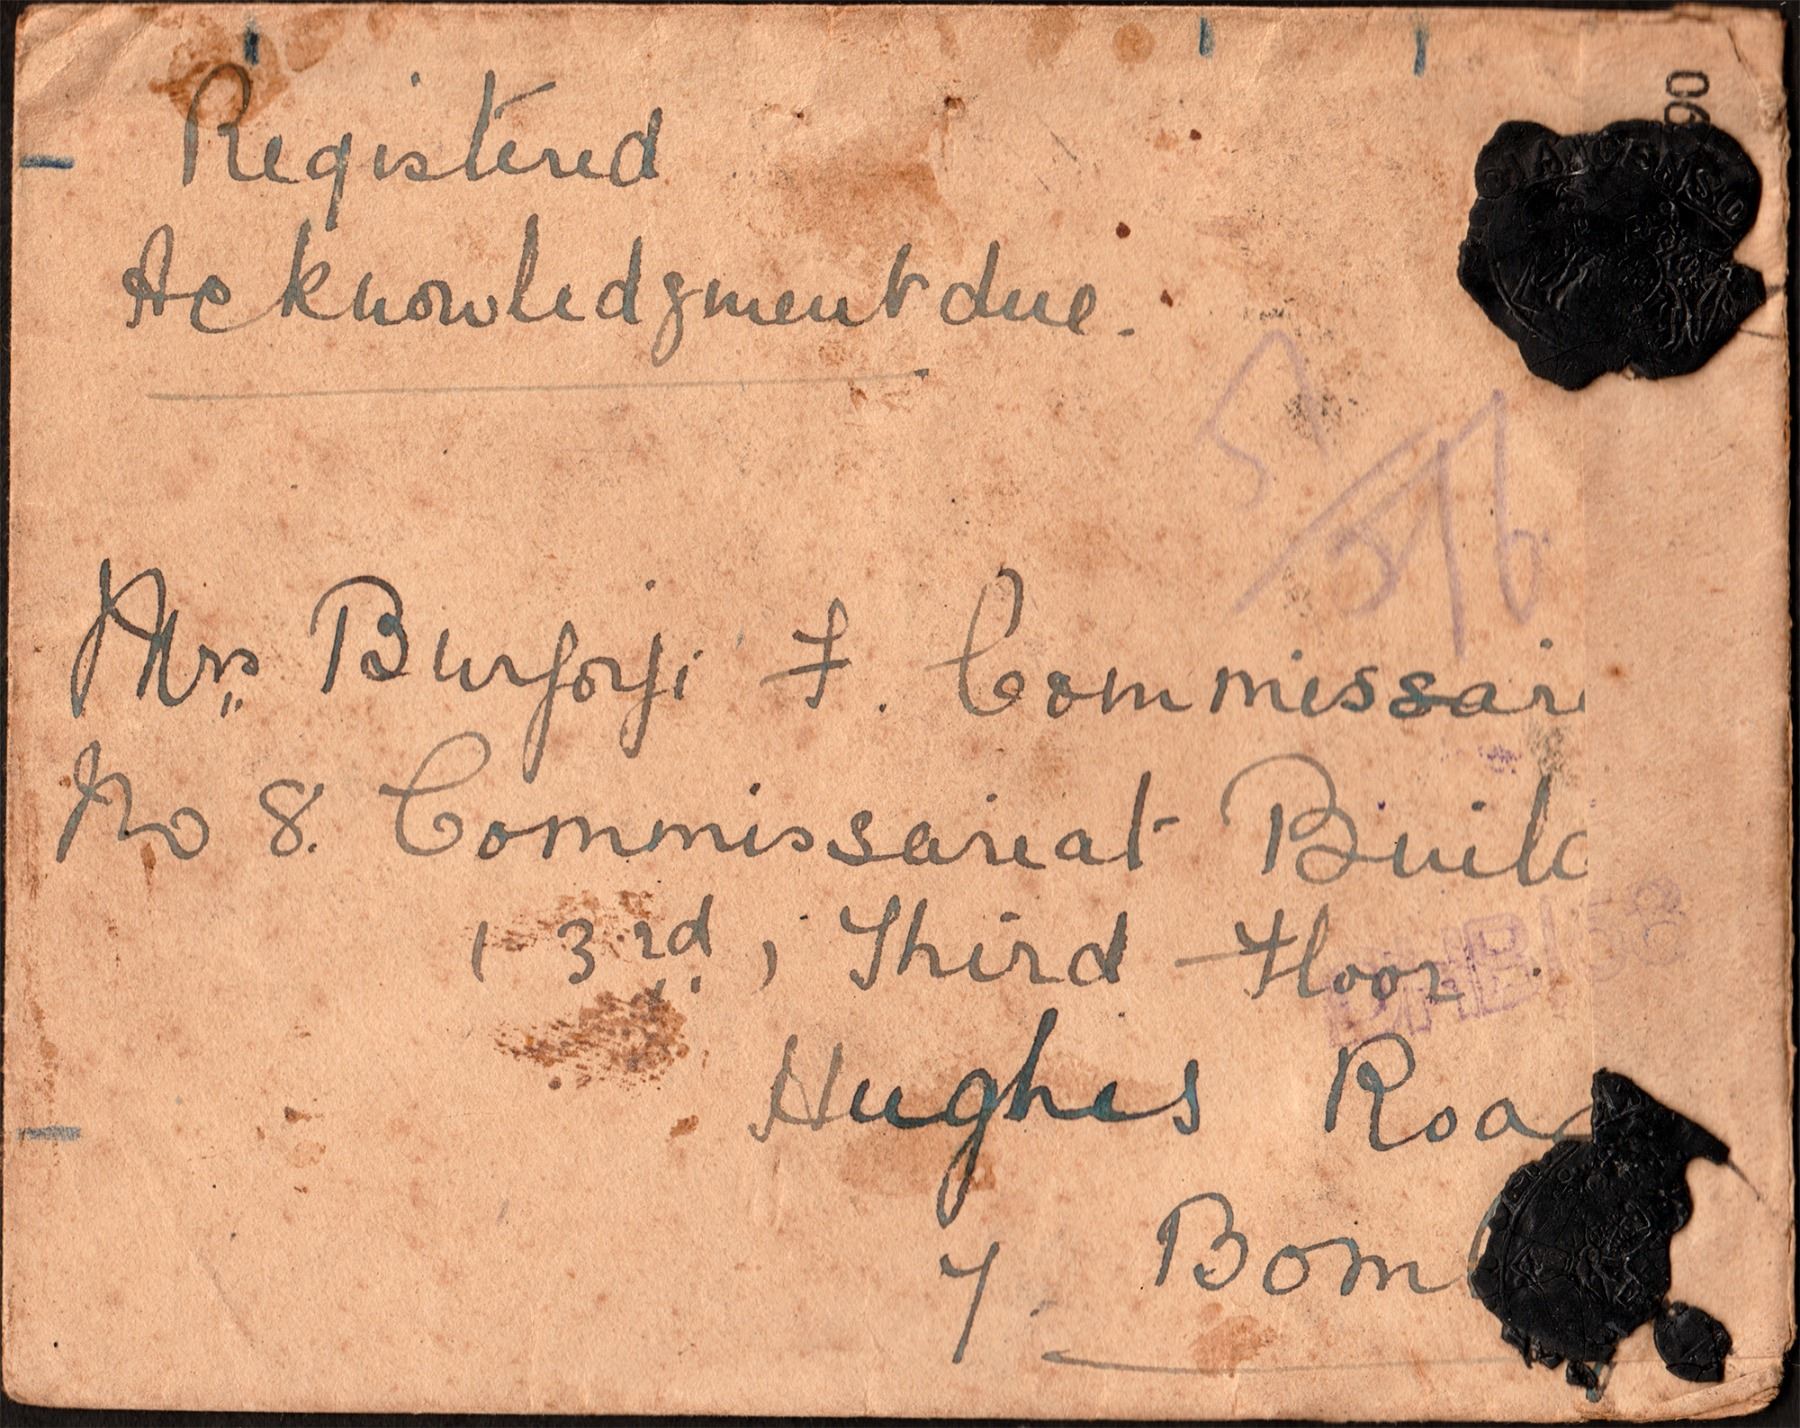 Registered
Acknowledgment due.
90
57
576
Mrs Burjorji F. Commissari
No 8. Commissariat Build
( 3rd, Third Floor.
DHB/58
Hughes Road
7. Bomb